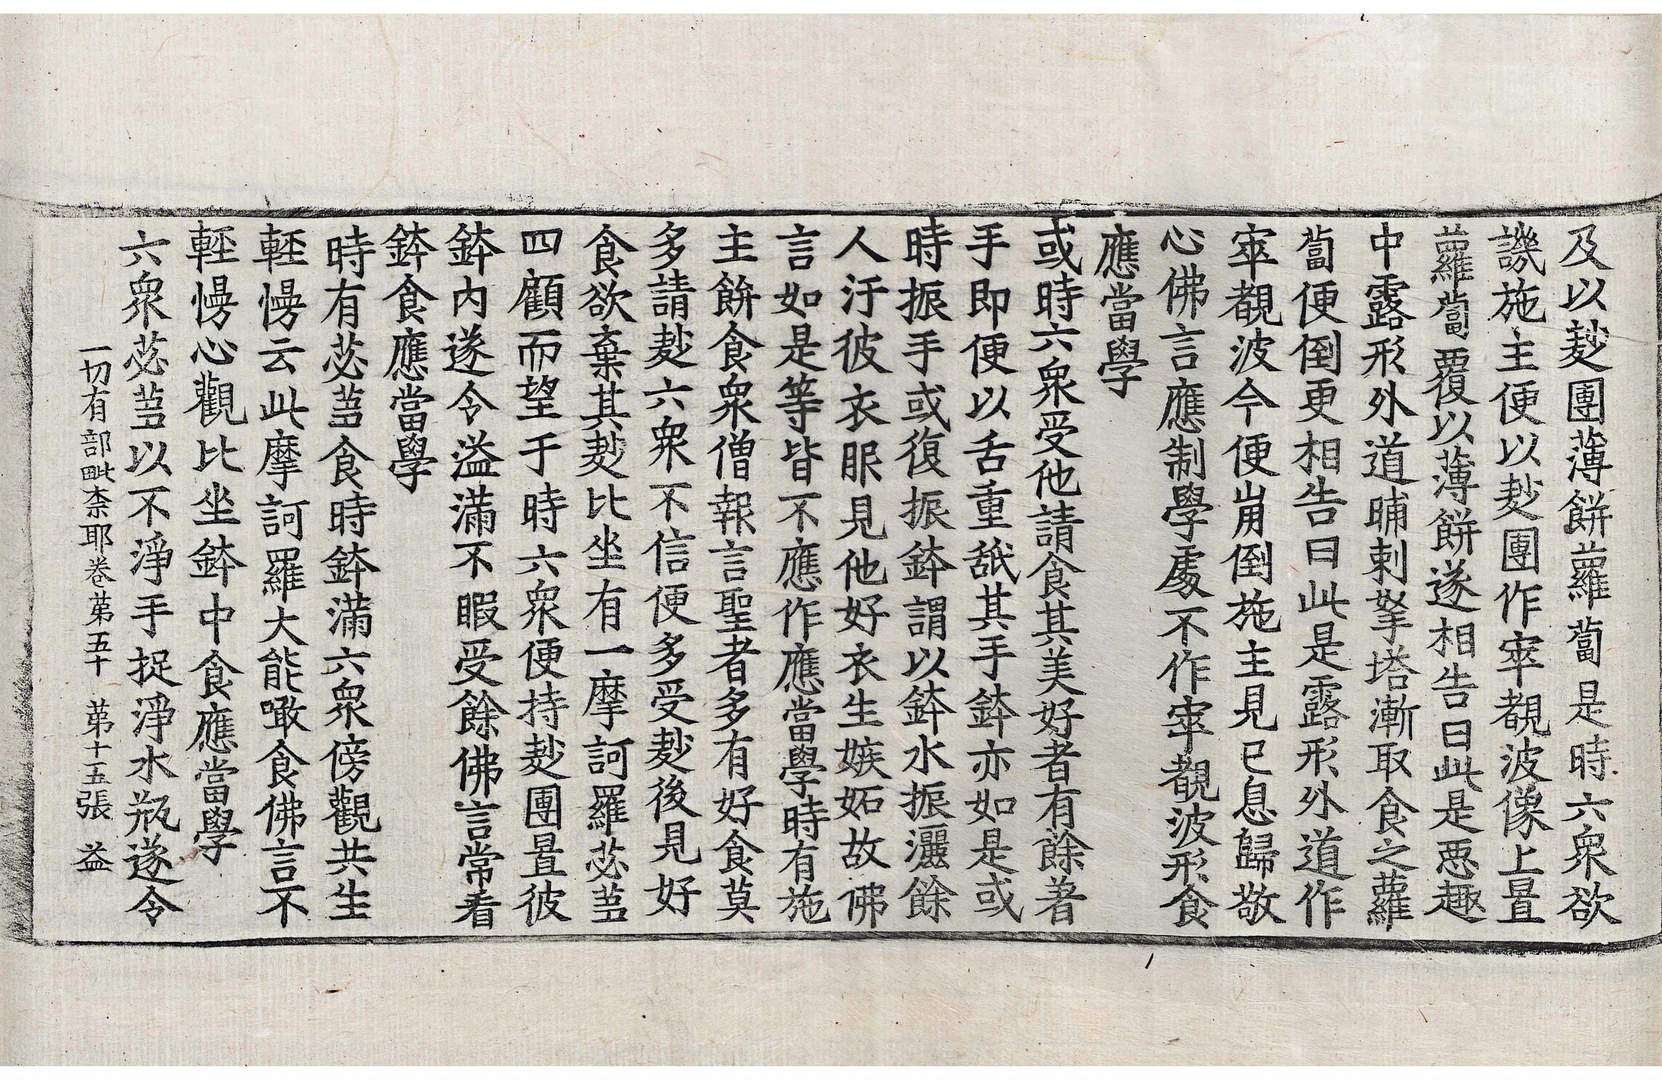 及以麨團薄餅蘿蔔是時六衆欲
譏施主便以麨團作窣覩波像上置
蘿蔔覆以薄餅遂相告曰此是惡趣
中露形外道晡剌拏塔漸取食之蘿
蔔便倒更相告曰此是露形外道作
窣覩波今便崩倒施主見已息歸敬
心佛言應制學處不作窣覩波形食
應當學
或時六衆受他請食其美好者有餘著
手即便以舌重舐其手鉢亦如是或
時振手或復振鉢謂以鉢水振灑餘
人汙彼衣服見他好衣生嫉妬故佛
言如是等皆不應作應當學時有施
主餅食衆僧報言聖者多有好食莫
多請麨六衆不信便多受麨後見好
食欲棄其麨比坐有一摩訶羅苾芻
四顧而望于時六衆便持麨團置彼
鉢內遂令溢滿不暇受餘佛言常看
鉢食應當學
時有苾芻食時鉢滿六衆傍觀共生
輕慢云此摩訶羅大能噉食佛言不
輕慢心觀比坐鉢中食應當學
六衆苾芻以不淨手捉淨水瓶遂令
一切有部毗柰耶卷第五十 第十五張 益